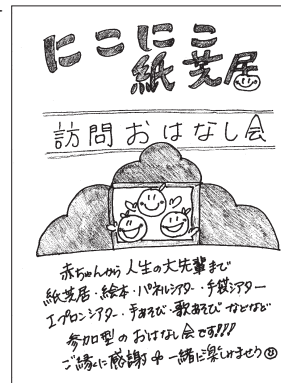 にこにこ
紙芝居
訪問おはなし会
赤ちゃんから人生の大先輩まで
紙芝居・絵本・パネルシアター・手袋シアター
エプロンシアター・手あそび・歌あそびなどなど
参加型のおはなし会です!!!
ご縁に感謝 一緒に楽しみましょう